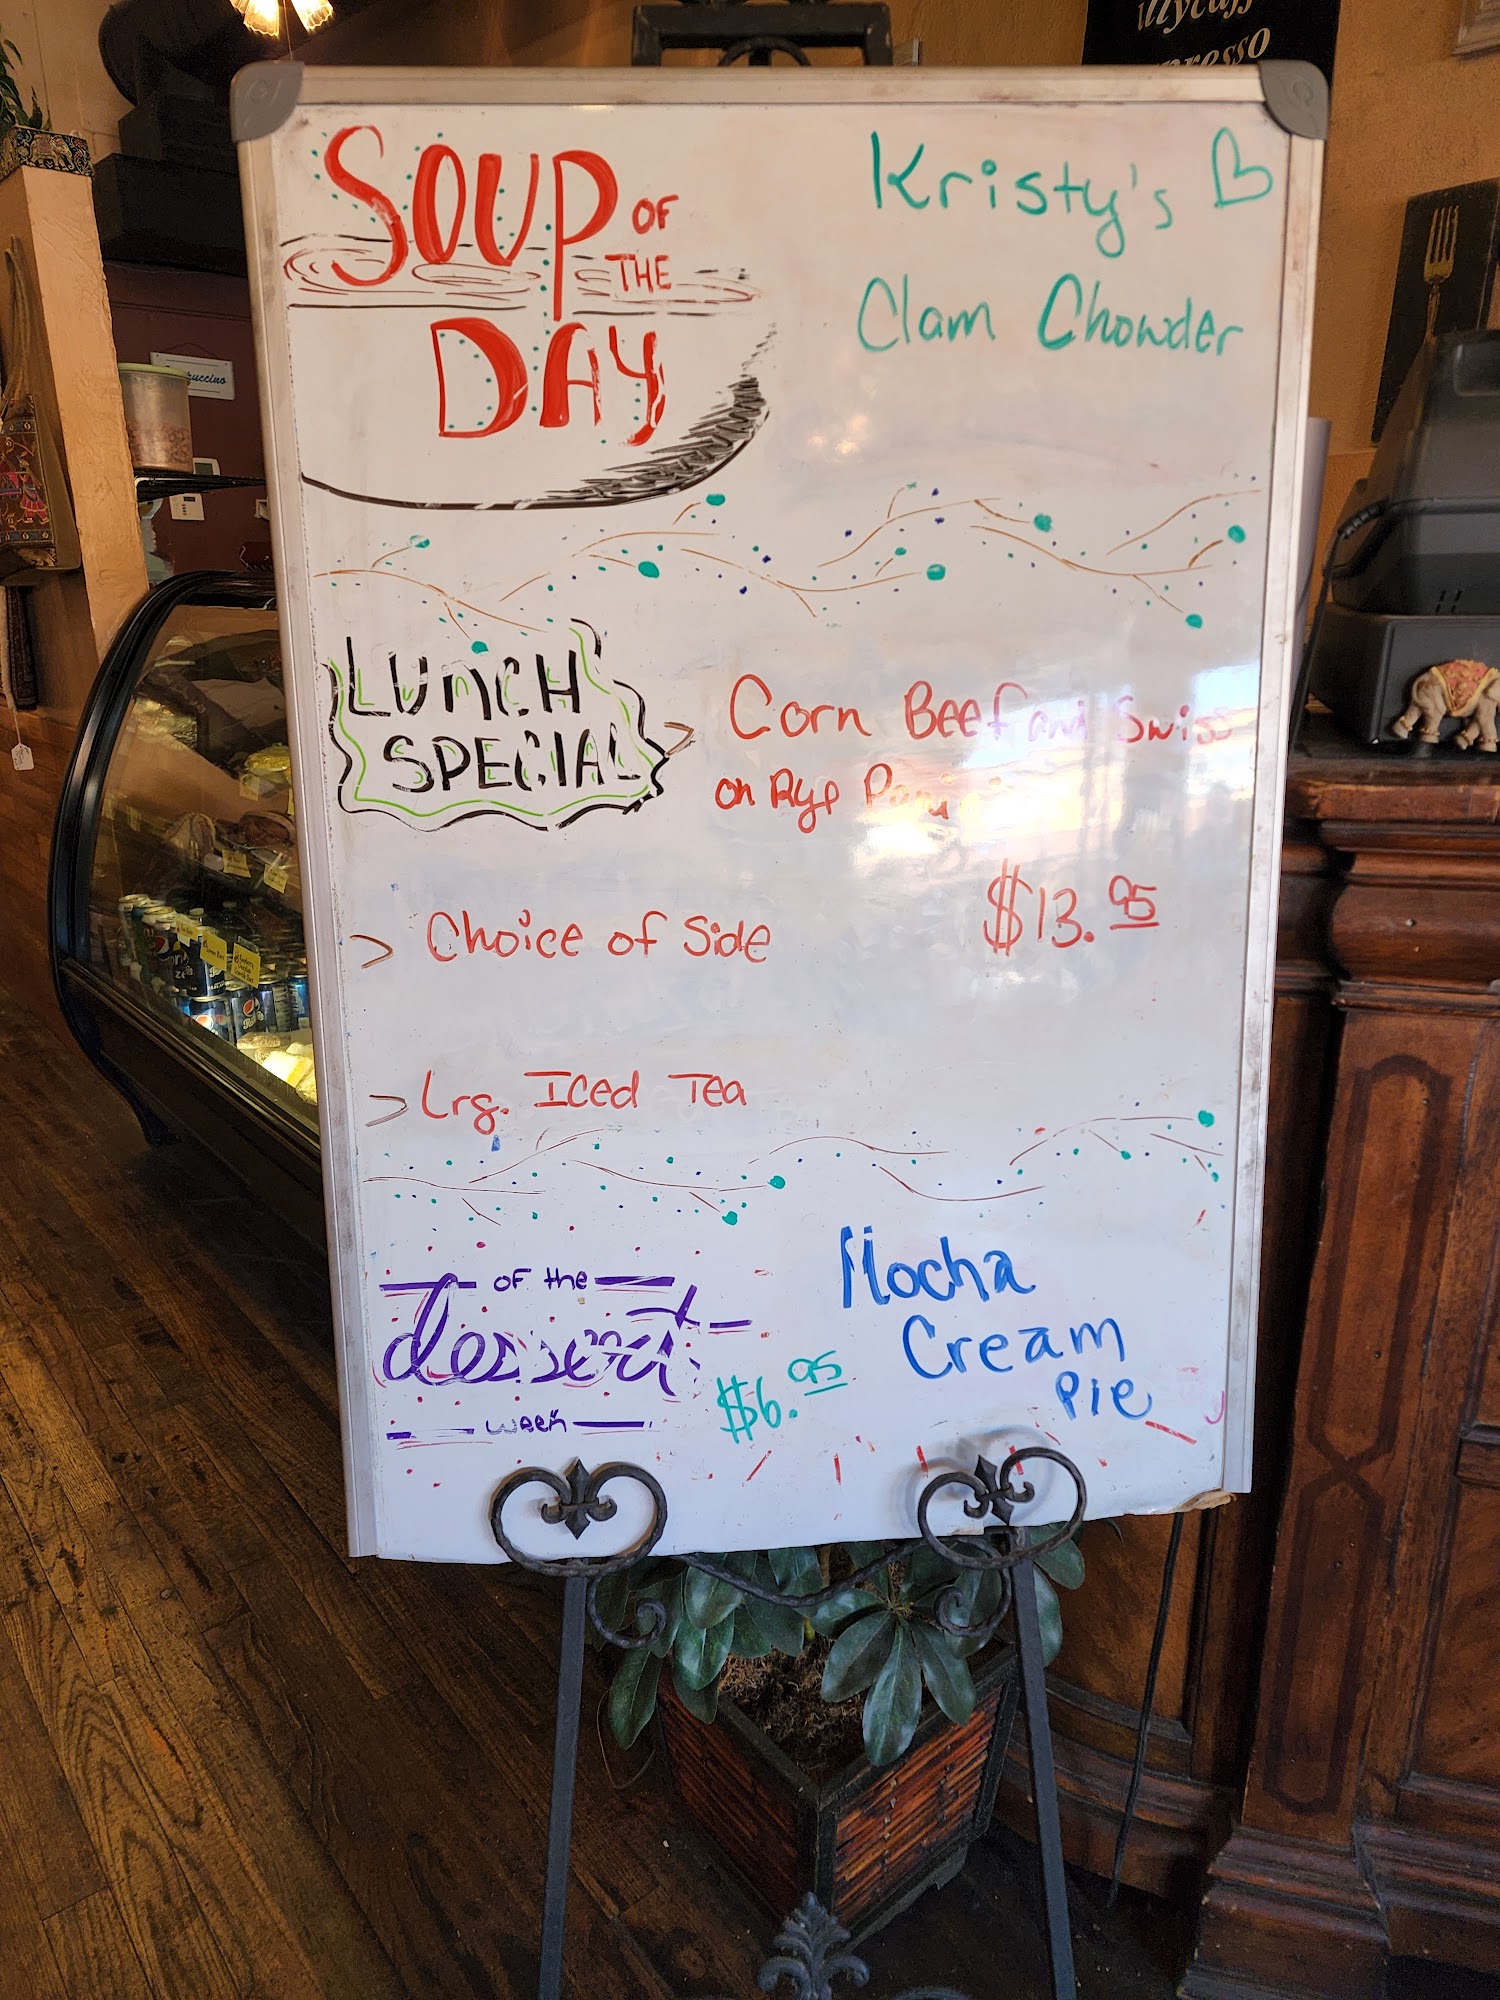 espresso
SOUP OF
THE
DAY
Kristy's
Clam Chowder
uccino
LUNCH
SPECIAL
> Corn Beef and Swiss
on Rye Panini
$13.95
> Choice of Side
> Lrg. Iced Tea
of the
dessert
week
$6.95
Mocha
Cream
Pie